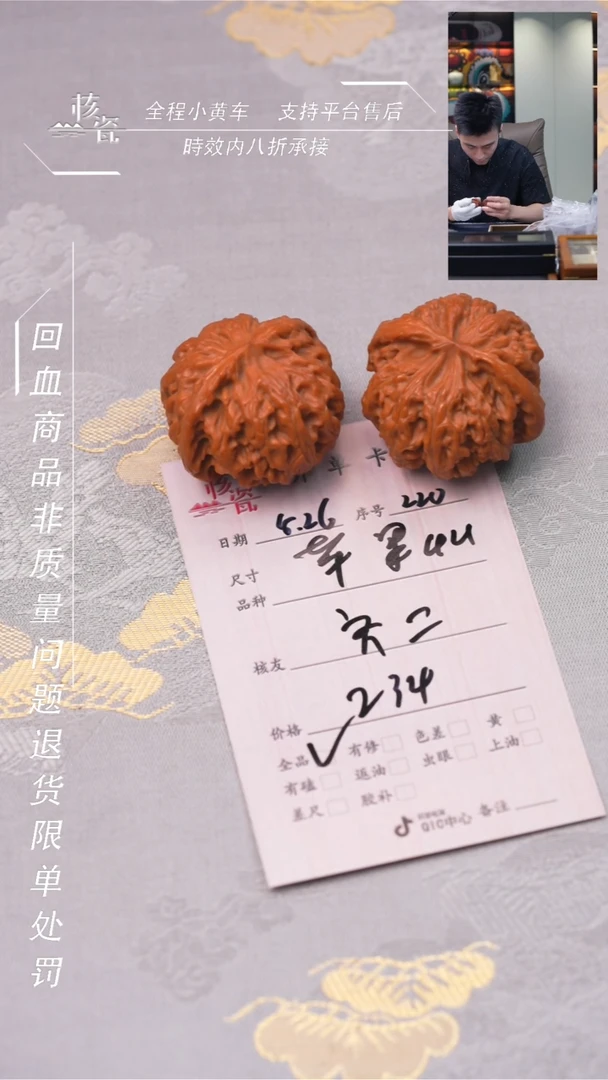 核瓷
全程小黄车 支持平台售后
時效内八折承接
回血商品非质量问题退货限单处罚
核瓷 单卡
日期 8.26 序号 220
尺寸 苹果44
品种
核友 天二
价格 234
全品 ✓ 有修 色差 黄
有磕 返油 虫眼 上油
差尺 胶补
QIC中心 备注